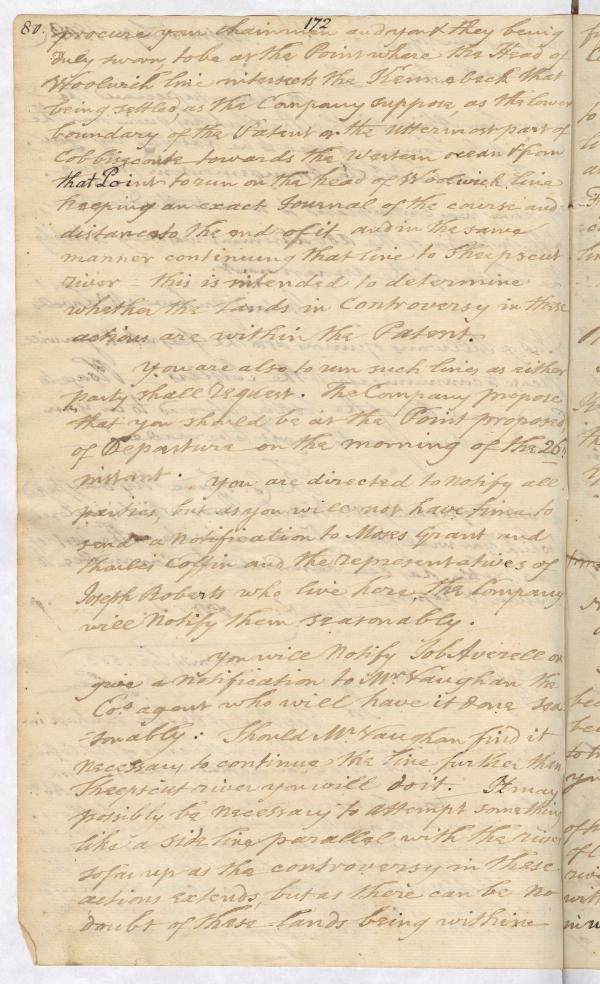 80. 172
procure your chainmen and you & they being
duly sworn, to be at the Point where the Head of
Woolwich line intersects the Kennebeck that
being settled, as the Company suppose, as the lower
boundary of the Patent or the uttermost part of
Cobbiseconte towards the Western ocean & from
that Point to run on the head of Woolwich line
keeping an exact Journal of the course and
distance to the end of it and in the same
manner continuing that line to Sheepscut
river - this is intended to determine
whether the Lands in Controversy in these
actions are within the Patent.
You are also to run such lines as either
party shall request. The Company propose
that you should be at the Point proposed
of Departure on the morning of the 26
instant. You are directed to notify all
parties, but as you will not have time to
send a notification to Moses Grant and
Charles Coffin and the representatives of
Joseph Roberts who live here, the Company
will Notify them seasonably.
You will Notify Job Averell or
give a notification to Mr. Vaughan the
Cos. agent who will have it done sea
-sonably. Should Mr. Vaughan find it
necessary to continue the line further than
Sheepscut river you will do it. It may
possibly be necessary to attempt something
like a side line parallel with the river
so far up as the controversy in these
actions extends, but as there can be no
doubt of these lands being within